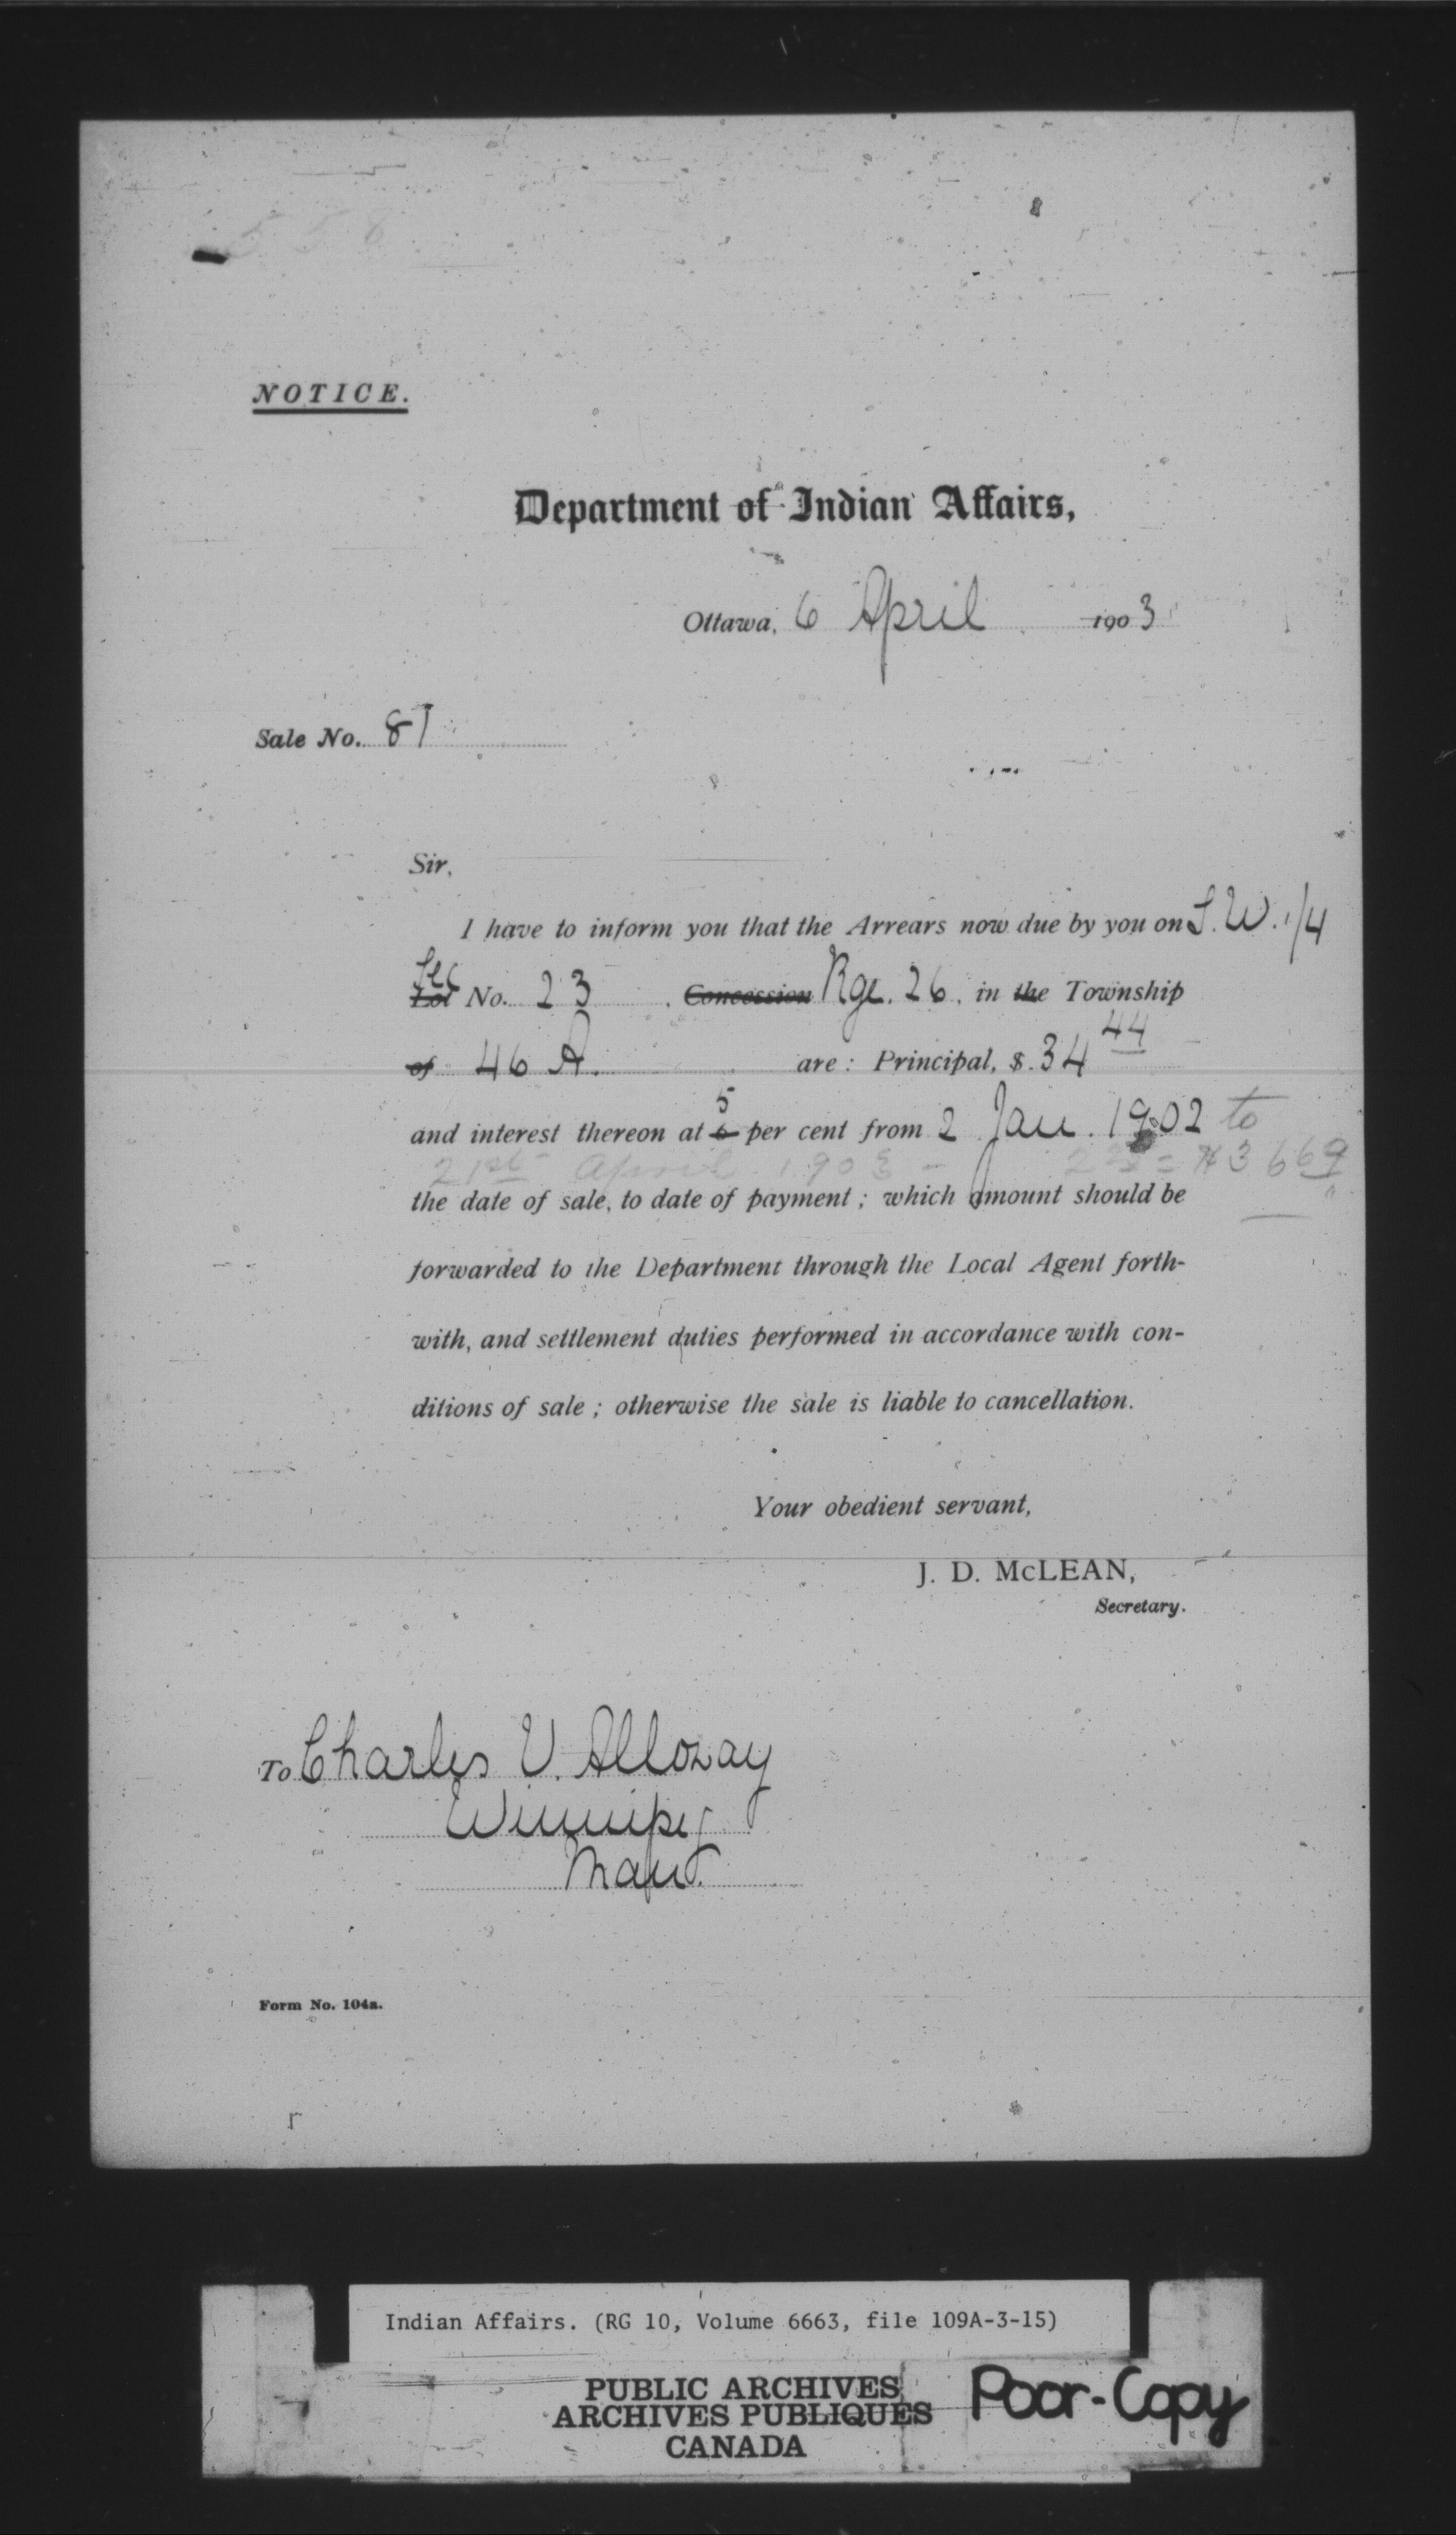 558
NOTICE.
Department of Indian Affairs,
Ottawa, 6 April 1903
Sale No. 87
Sir,
I have to inform you that the Arrears now due by you on S.W. 1/4
Sec
Lot No. 23 . Concession Rge. 26, in the Township
of 46 A. are: Principal, $ 34 44
5
and interest thereon at 6 per cent from 2 Jan. 1902 to
21st April 1903 - = $36 69
the date of sale, to date of payment; which amount should be
forwarded to the Department through the Local Agent forth-
with, and settlement duties performed in accordance with con-
ditions of sale; otherwise the sale is liable to cancellation.
Your obedient servant,
J. D. McLEAN,
Secretary.
To Charles V. Alloway
Winnipeg
Man.
Form No. 104a.
Indian Affairs. (RG 10, Volume 6663, file 109A-3-15)
PUBLIC ARCHIVES
ARCHIVES PUBLIQUES
CANADA
Poor-Copy